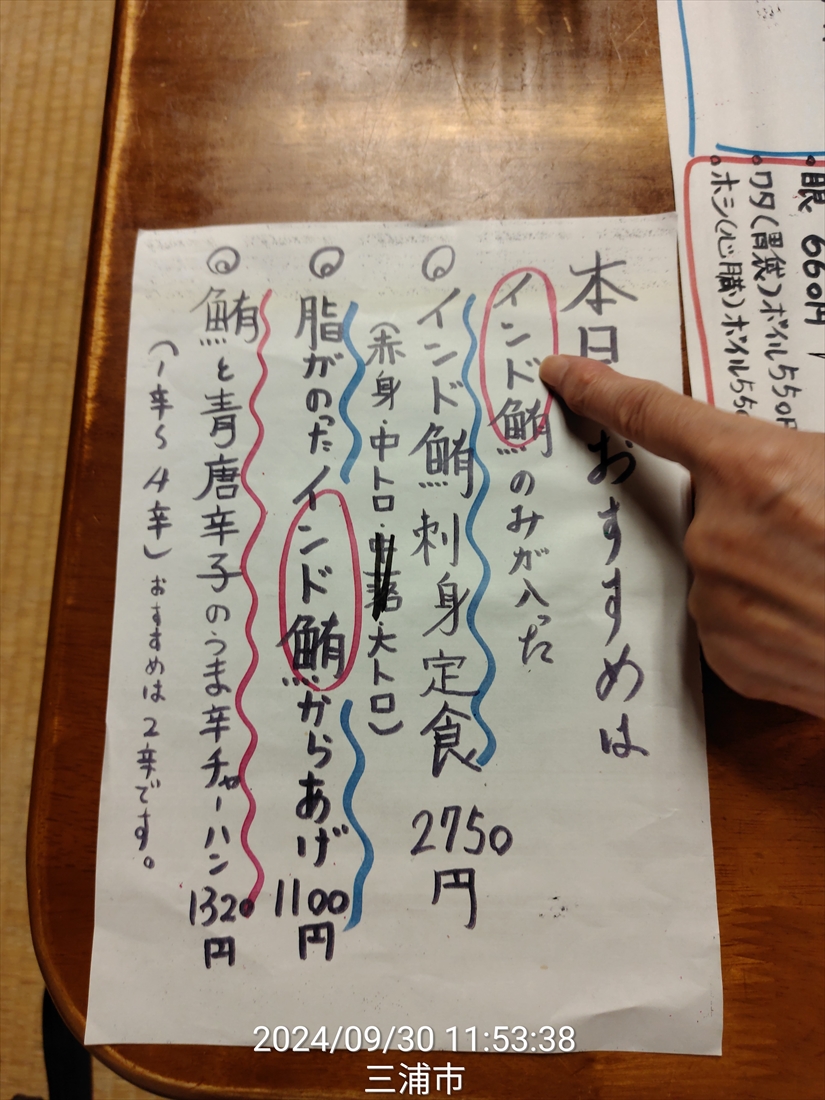 眼 660円
ワタ(胃袋)ボイル550円
ホシ(心臓)ボイル550
本日 おすすめは
インド鮪のみが入った
インド鮪刺身定食 2750円
(赤身・中トロ・大トロ)
脂がのったインド鮪からあげ 1100円
鮪と青唐辛子のうま辛チャーハン 1320円
(1辛〜4辛) おすすめは2辛です。
2024/09/30 11:53:38
三浦市